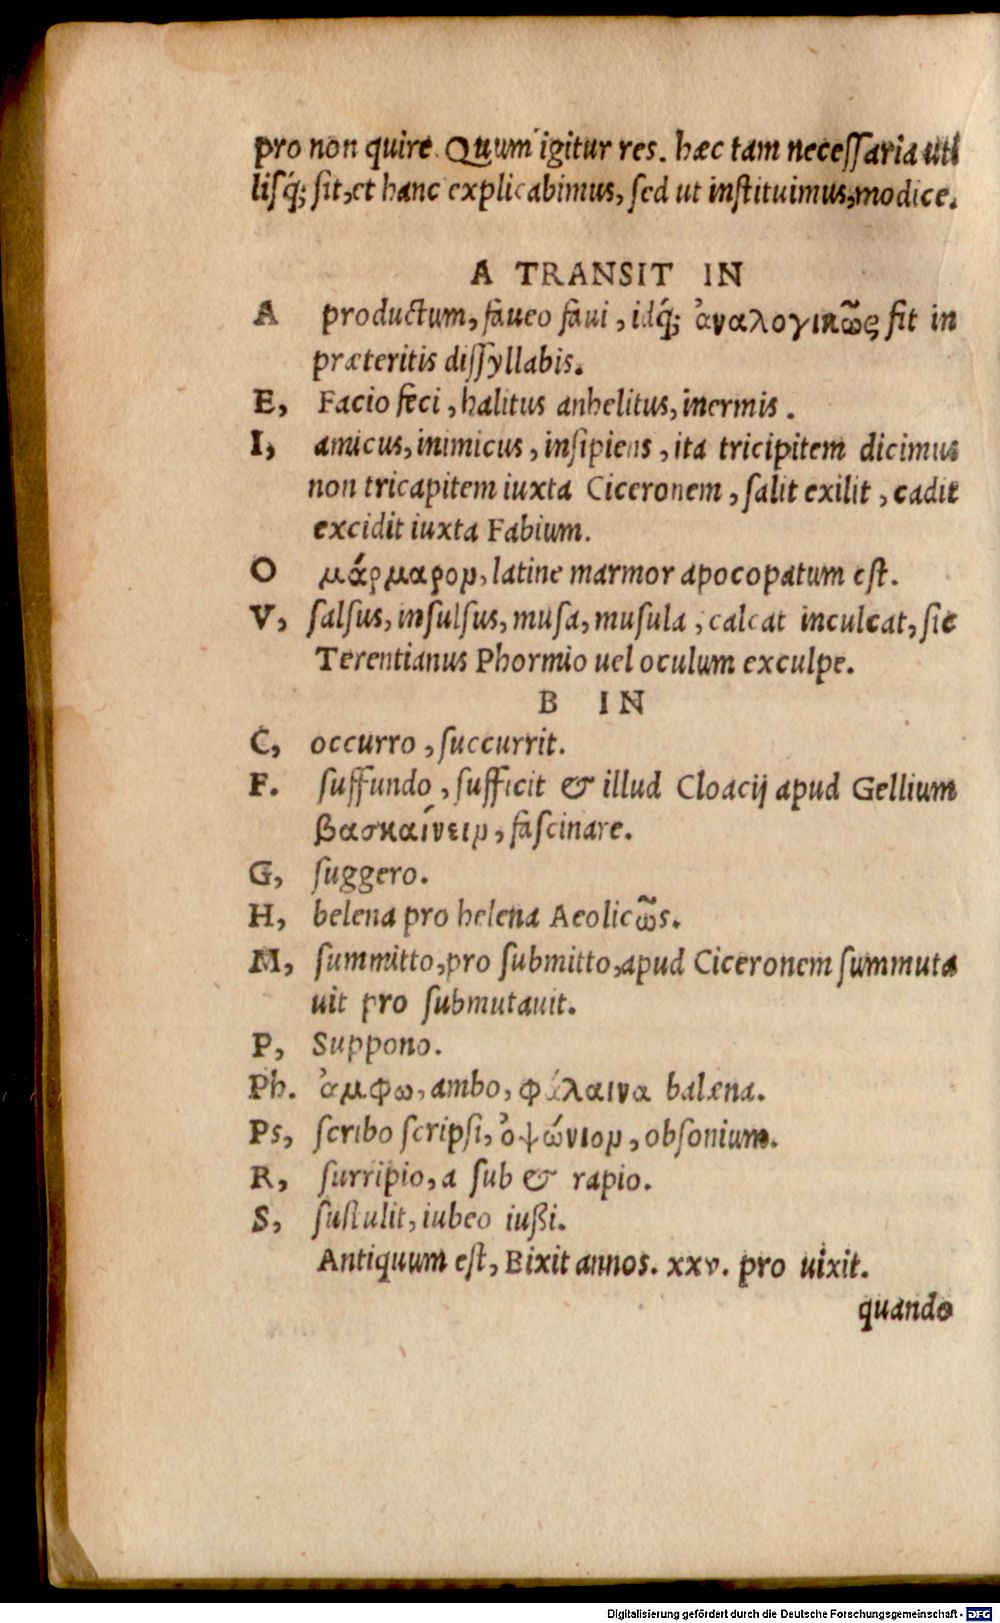 pro non quire. Quum igitur res. hæc tam necessaria uti
lisq́; sit, et hanc explicabimus, sed ut instituimus, modice.
A TRANSIT IN
A productum, faueo faui, idq́; ἀναλογικῶς fit in
præteritis dissyllabis.
E, Facio feci, halitus anhelitus, inermis.
I, amicus, inimicus, insipiens, ita tricipitem dicimus
non tricapitem iuxta Ciceronem, salit exilit, cadit
excidit iuxta Fabium.
O μάρμαρον, latine marmor apocopatum est.
V, salsus, insulsus, musa, musula, calcat inculcat, sic
Terentianus Phormio uel oculum exculpe.
B IN
C, occurro, succurrit.
F. suffundo, sufficit & illud Cloacij apud Gellium
βασκαίνειν, fascinare.
G, suggero.
H, belena pro helena Aeolicῶs.
M, summitto, pro submitto, apud Ciceronem summuta
uit pro submutauit.
P, Suppono.
Ph. ἀμφω, ambo, φάλαινα balæna.
Ps, scribo scripsi, ὀψώνιον, obsonium.
R, surripio, a sub & rapio.
S, sustulit, iubeo iußi.
Antiquum est, Bixit annos. xxv. pro uixit.
quando
Digitalisierung gefördert durch die Deutsche Forschungsgemeinschaft - DFG